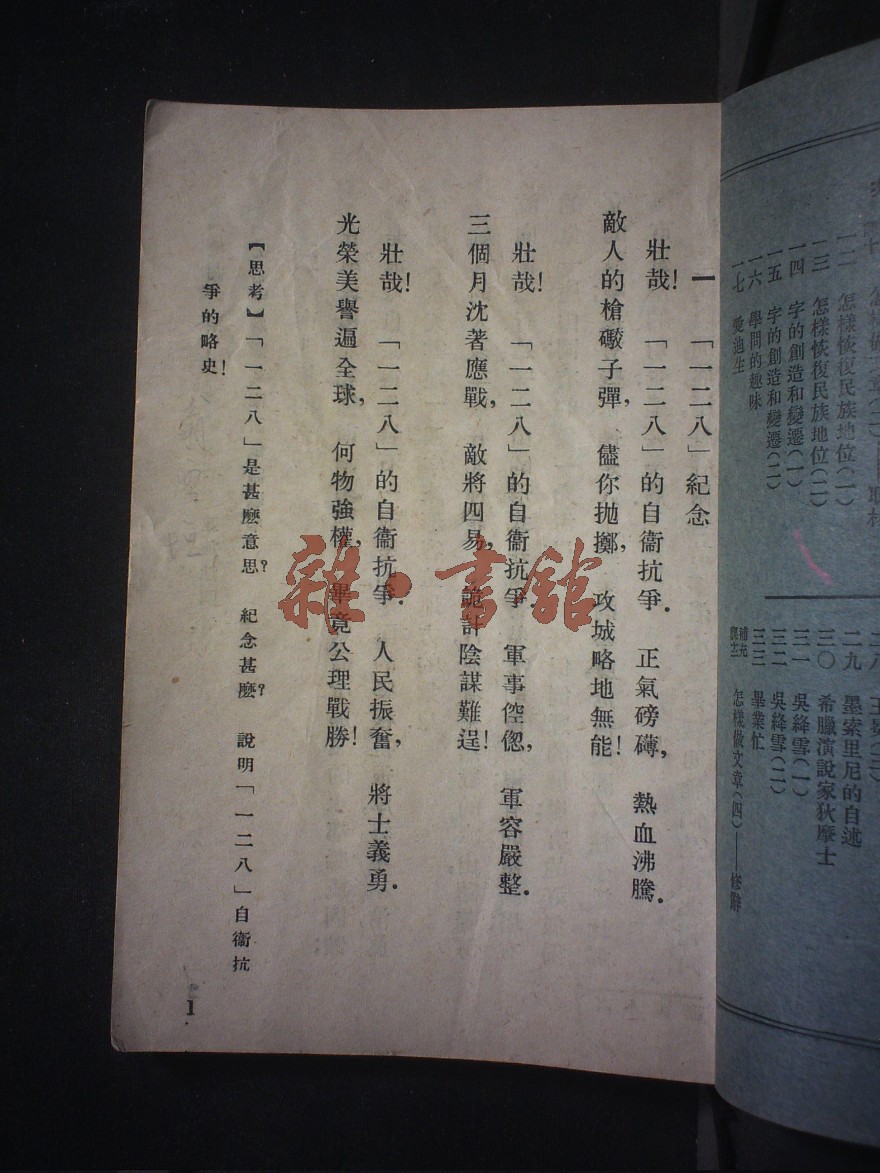 一二 怎樣恢復民族地位(一)
一三 怎樣恢復民族地位(二)
一四 字的創造和變遷(一)
一五 字的創造和變遷(二)
一六 學問的趣味
一七 愛迪生
二九 墨索里尼的自述
三〇 希臘演說家狄摩士
三一 吳絳雪(一)
三二 吳絳雪(二)
三三 畢業忙
補充 怎樣做文章(四)——修辭
一 「一二八」紀念
壯哉! 「一二八」的自衞抗爭. 正氣磅礴, 熱血沸騰.
敵人的槍礮子彈, 儘你拋擲, 攻城略地無能!
壯哉! 「一二八」的自衞抗爭 軍事倥偬, 軍容嚴整.
三個月沈著應戰, 敵將四易, 詭計陰謀難逞!
壯哉! 「一二八」的自衞抗爭. 人民振奮, 將士義勇.
光榮美譽遍全球, 何物強權, 畢竟公理戰勝!
【思考】「一二八」是甚麼意思? 紀念甚麼? 說明「一二八」自衞抗
爭的略史!
1
雜·書館